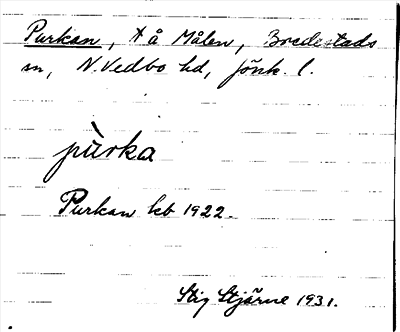 Purkan, t å Målen, Bredestads
sn, N. Vedbo hd, Jönk. l.
pùrka
Purkan kb 1922.
Stig Stjärne 1931.